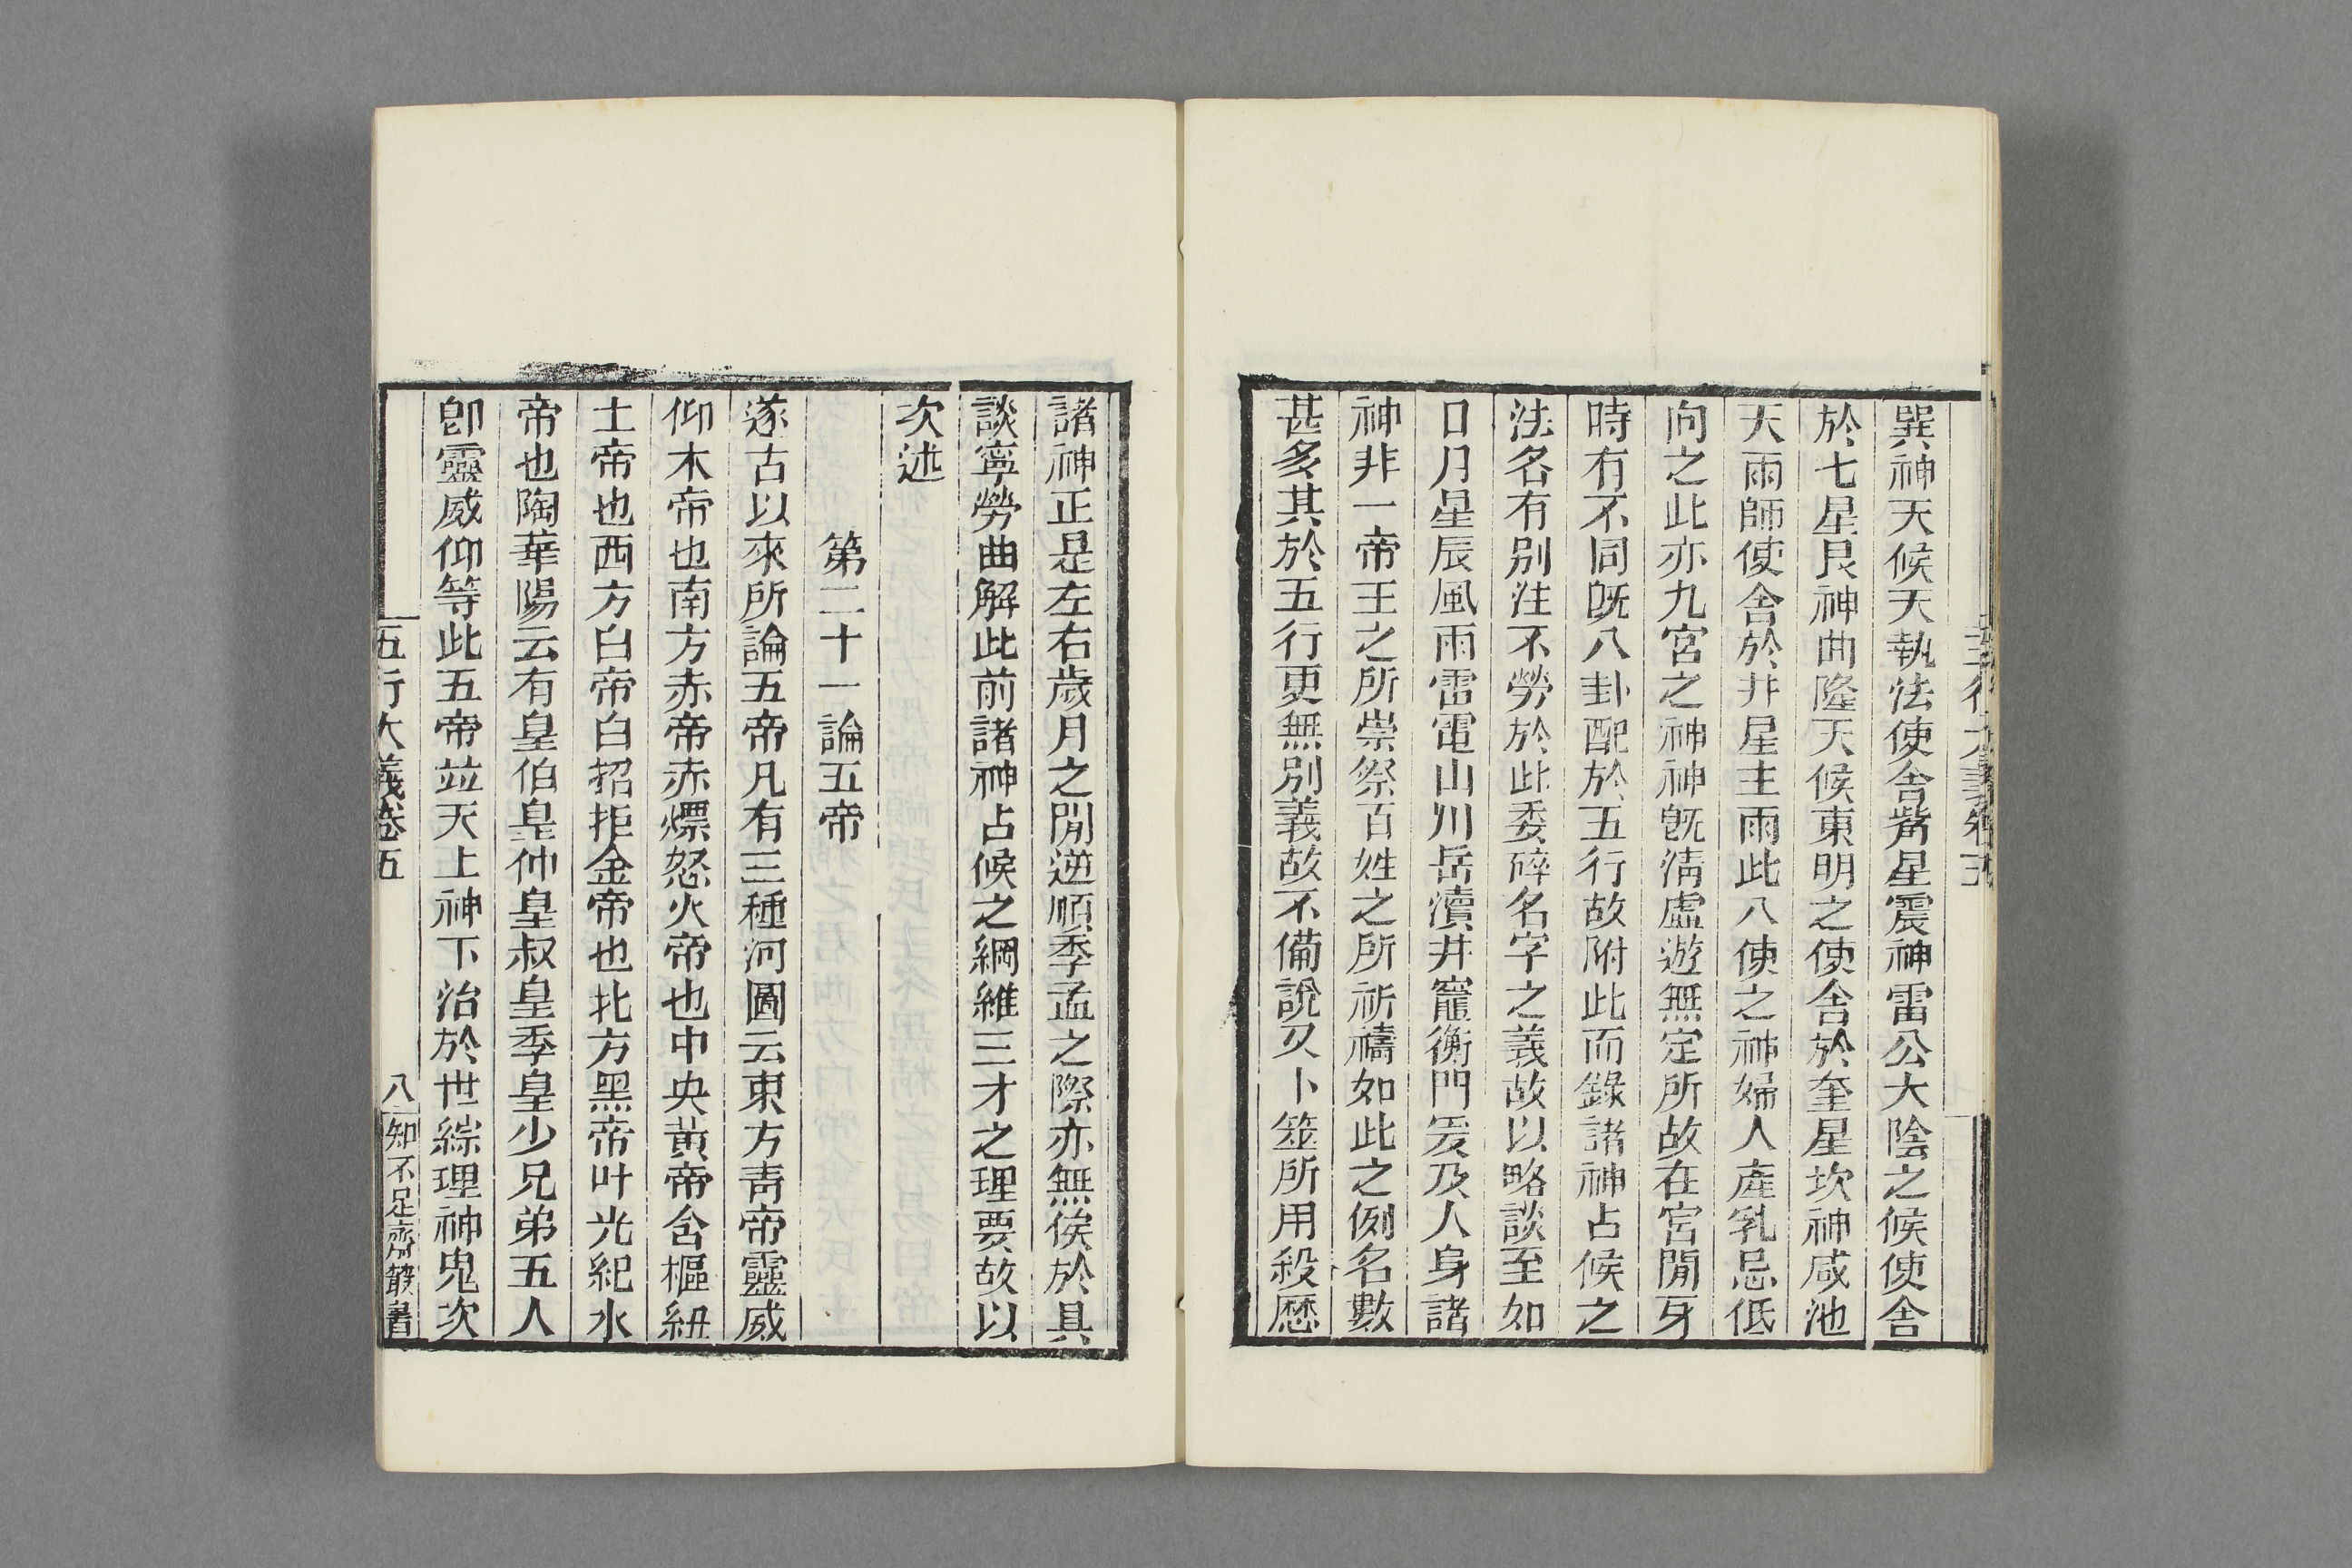 巽神天候天執法使舍觜星震神雷公大陰之候使舍
於七星艮神曲隆天候東明之使舍於奎星坎神咸池
天雨師使舍於井星主雨此八使之神婦人產乳忌低
向之此亦九宮之神神旣淸虛遊無定所故在宮閒牙
時有不同旣八卦配於五行故附此而錄諸神占候之
法名有别注不勞於此委碎名字之義故以略談至如
日月星辰風雨雷電山川岳瀆井竈衡門爰及人身諸
神非一帝王之所崇祭百姓之所祈禱如此之例名數
甚多其於五行更無別義故不備說又卜筮所用殺曆
諸神正是左右歲月之閒逆順季孟之際亦無俟於具
談寧勞曲解此前諸神占候之綱維三才之理要故以
次述
第二十一論五帝
遂古以來所論五帝凡有三種河圖云東方靑帝靈威
仰木帝也南方赤帝赤熛怒火帝也中央黃帝含樞紐
土帝也西方白帝白招拒金帝也北方黑帝叶光紀水
帝也陶華陽云有皇伯皇仲皇叔皇季皇少兄弟五人
卽靈威仰等此五帝竝天上神下治於世綜理神鬼次
五行大義卷五 八 知不足齋叢書